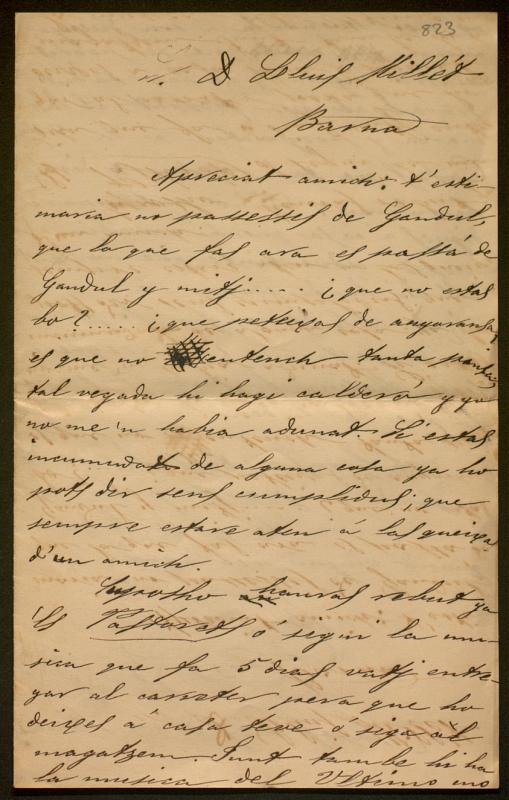 823
D Lluis Millét
Barna
Apreciat amich: t'esti-
maria no passessis de Gandul,
que lo que fas ara es passá de
Gandul y mitj..... ¡que no estas
bo?..... ¡que peteixas de anyoransa,
es que no entench tanta
tal vegada hi hagi calderó y yo
no me'n habia adunat. Si estas
incumodat de alguna cosa ya ho
pots dir sens cumplidus; que
sempre estare aten á las queixas
d'un amich.
Suposho hauras rebut ya
'ls Pastorets ó sigui la mu-
sica que fa 5 dias vatj entre-
gar al carreter pera que ho
deixes á casa teva ó siga al
magatzem. Junt tambe hi ha
la musica del Ultimo mo